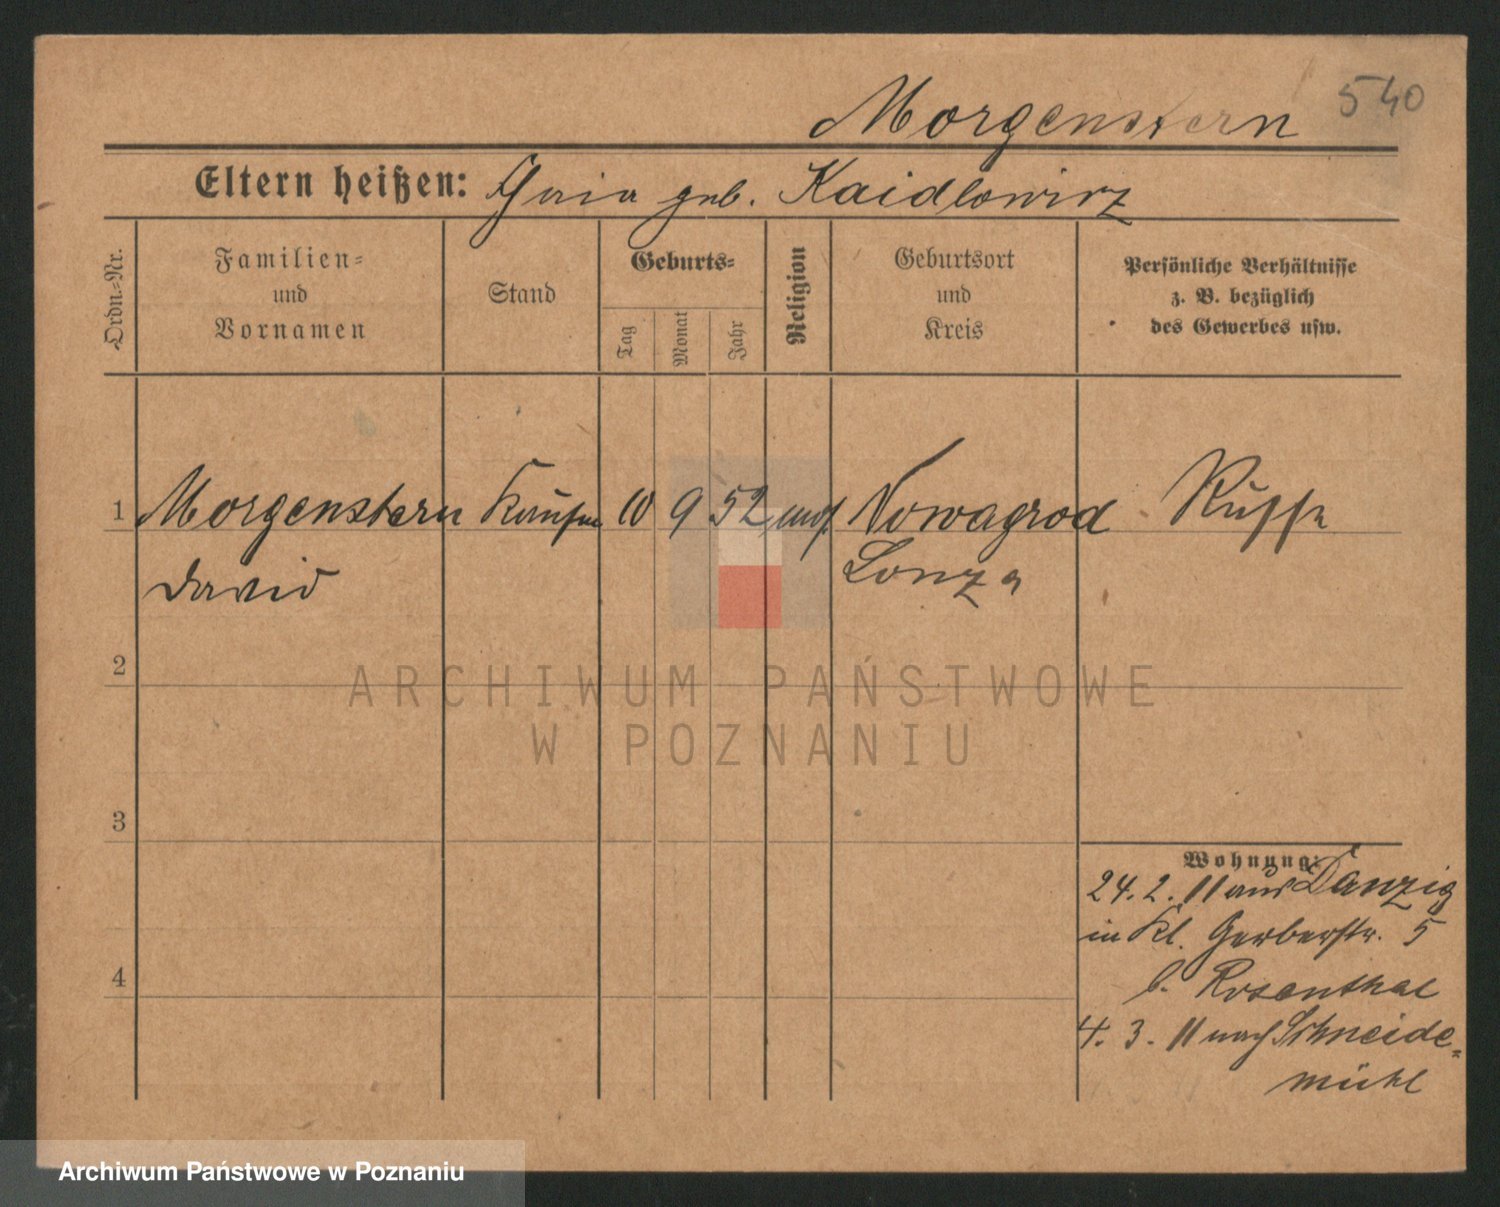 540
Morgenstern
Eltern heißen: geb. Kaidlowirz
Ordn.-Nr.
Familien-
und
Vornamen
Stand
Geburts-
Tag
Monat
Jahr
Religion
Geburtsort
und
Kreis
Persönliche Verhältnisse
z. B. bezüglich
des Gewerbes usw.
1 Morgenstern Kaufm 10 9 52 mos. Nowagrod Russe
David Lomza
2
ARCHIWUM PAŃSTWOWE
W POZNANIU
3
Wohnung:
24. 2. 11 aus Danzig
in Kl. Gerberstr. 5
4
b. Rosenthal
4. 3. 11 nach Schneide-
mühl
Archiwum Państwowe w Poznaniu